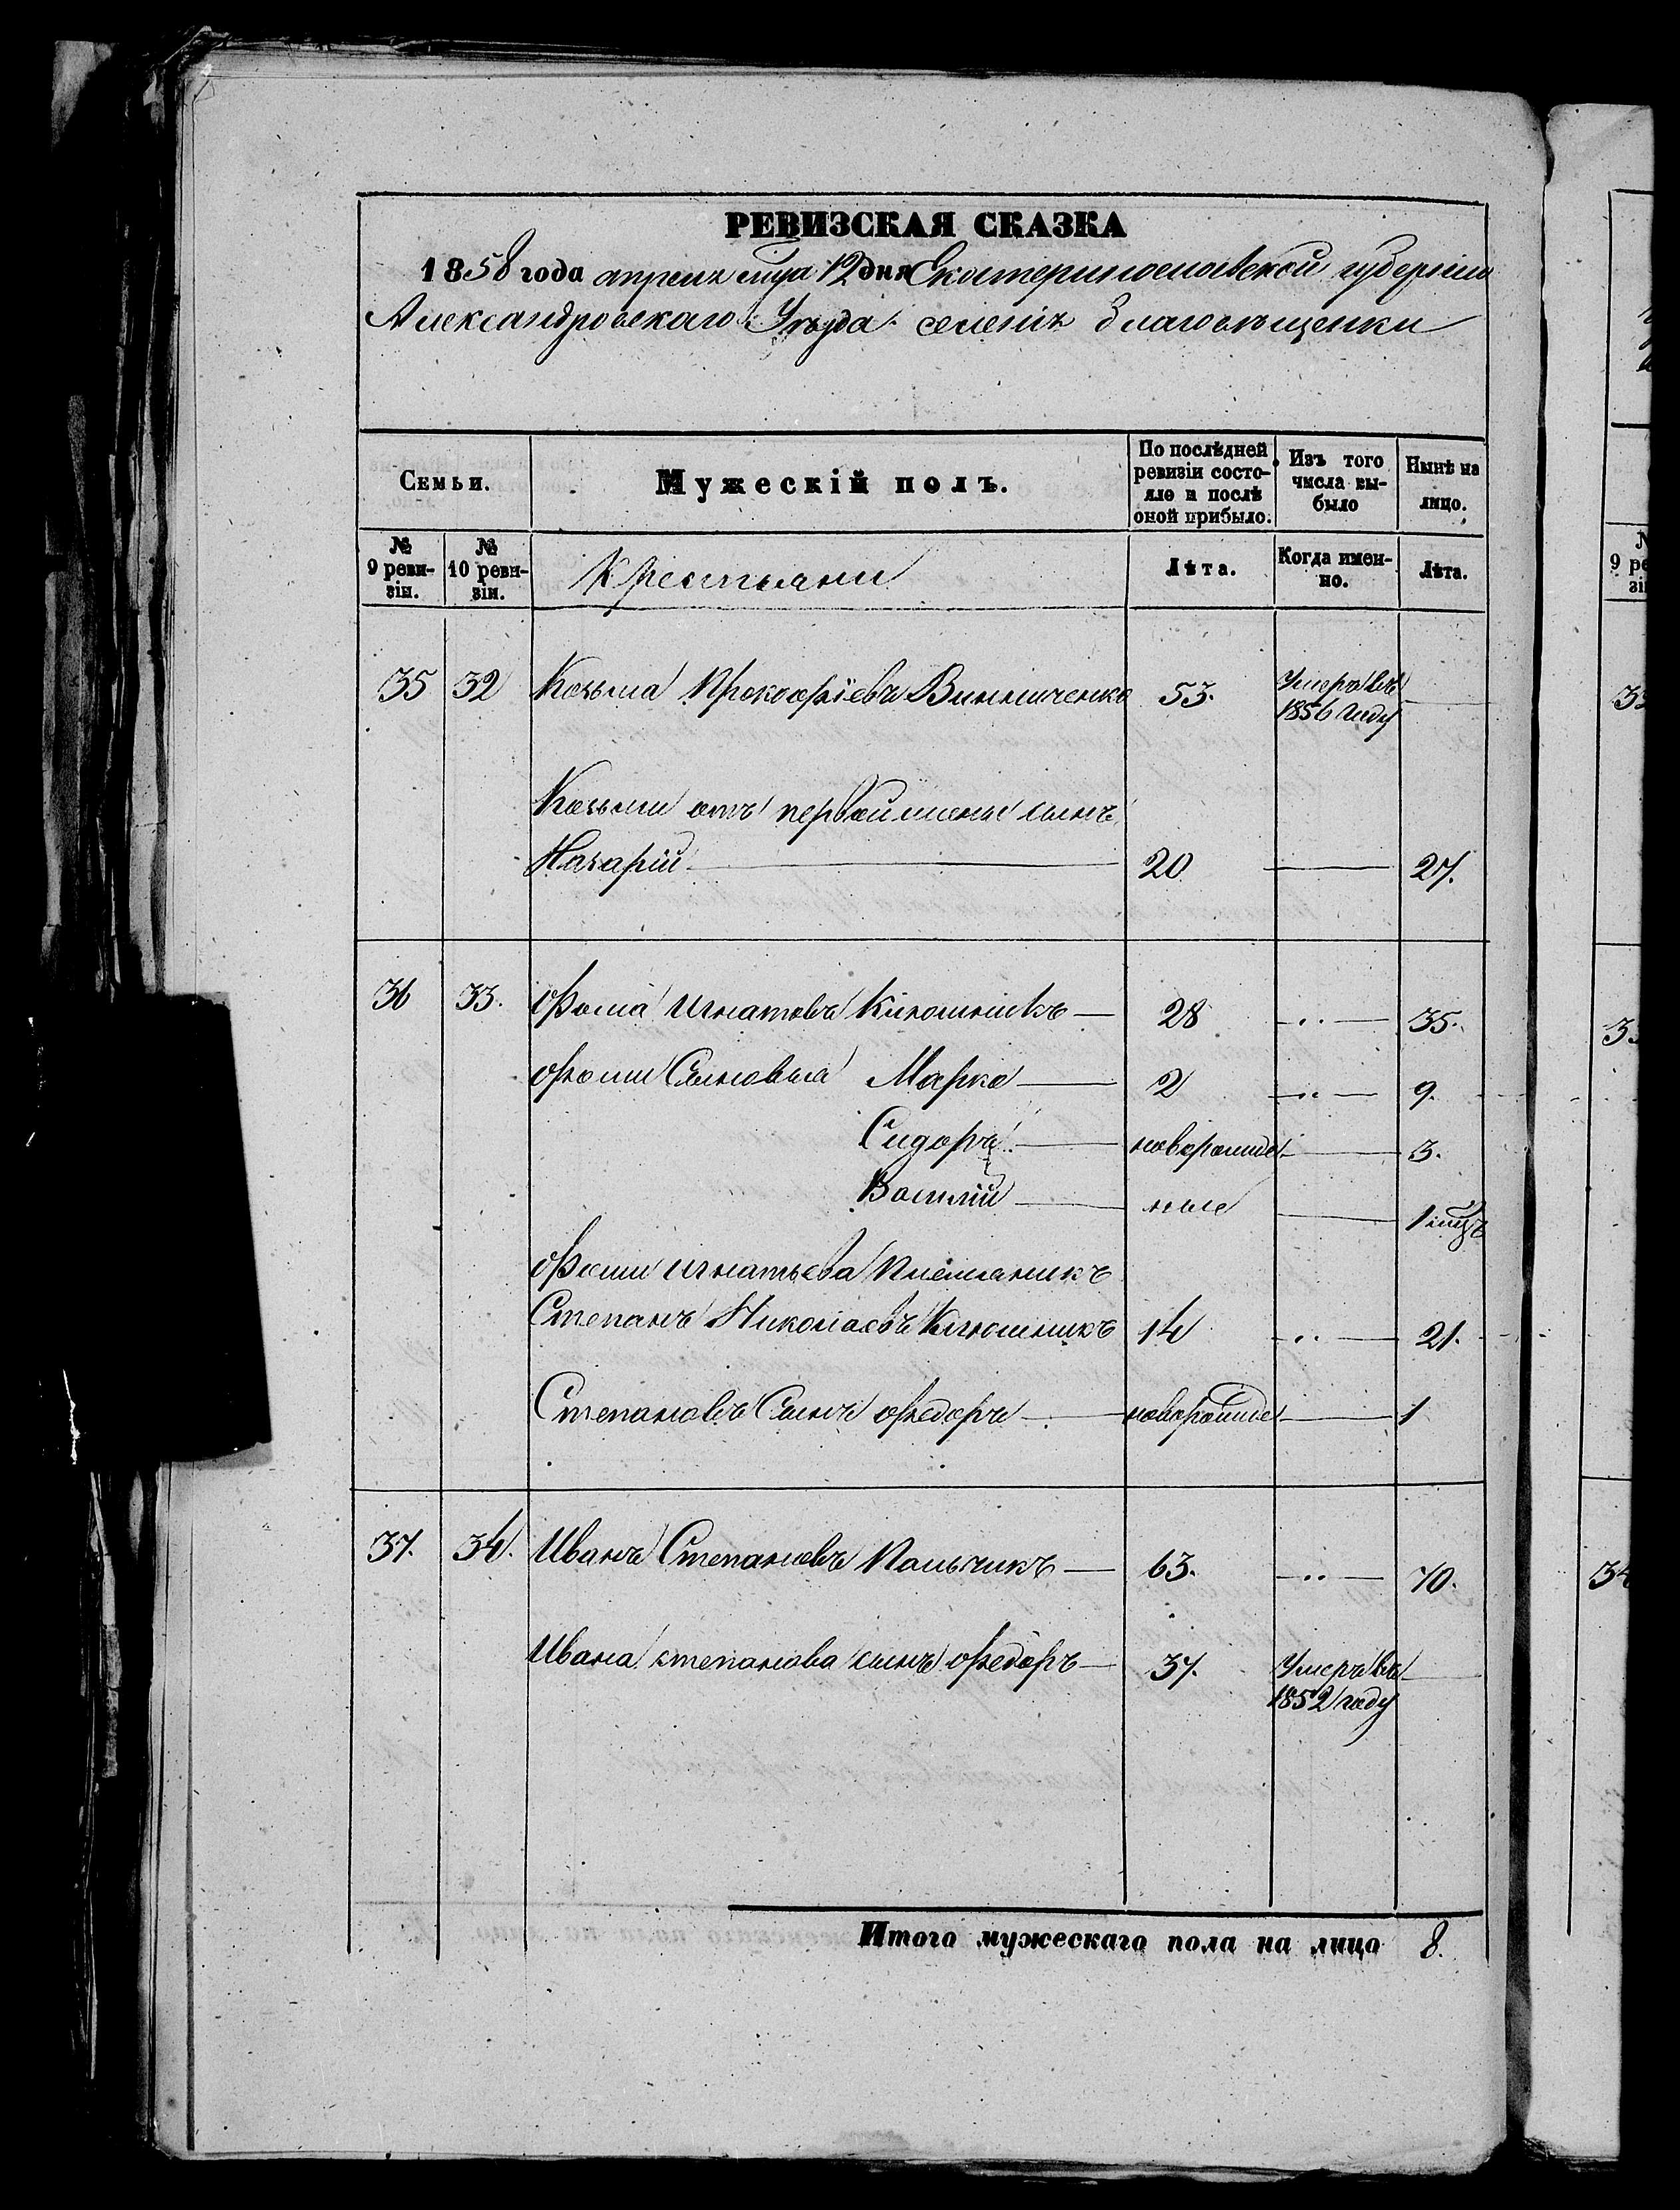 РЕВИЗСКАЯ СКАЗКА
1858 года апреля мца 12 дня Екатеринославской губернии
Александровскаго Уѣзда селенія благовѣщенки
Семьи. Мужескій полъ. По послѣдней ревизіи состояло и послѣ оной прибыло. Изъ того числа выбыло Нынѣ на лицо.
№ 9 ревизіи. № 10 ревизіи. Крестьяни Лѣта. Когда именно. Лѣта.
35 32 Козьма Прокофіевъ Винниченко 53. Умеръ въ 1856 году
Козьмы отъ первой жены сынъ
Назарій 20 27.
36 33. Фома Игнатовъ Клюшникъ 28 35.
Фомы Сыновья Марко 2 9.
Сидоръ новорожде 3.
Василій ные 1 мцъ
Фомы Игнатьева Племяникъ
Степанъ Николаевъ Клюшникъ 14 21.
Степановъ Сынъ Федоръ новорожде 1
37. 34. Иванъ Степановъ Пальчикъ 63. 70.
Ивана степанова сынъ Федоръ 37. Умеръ въ 1852 году
Итого мужескаго пола на лицо 8.
9 ре